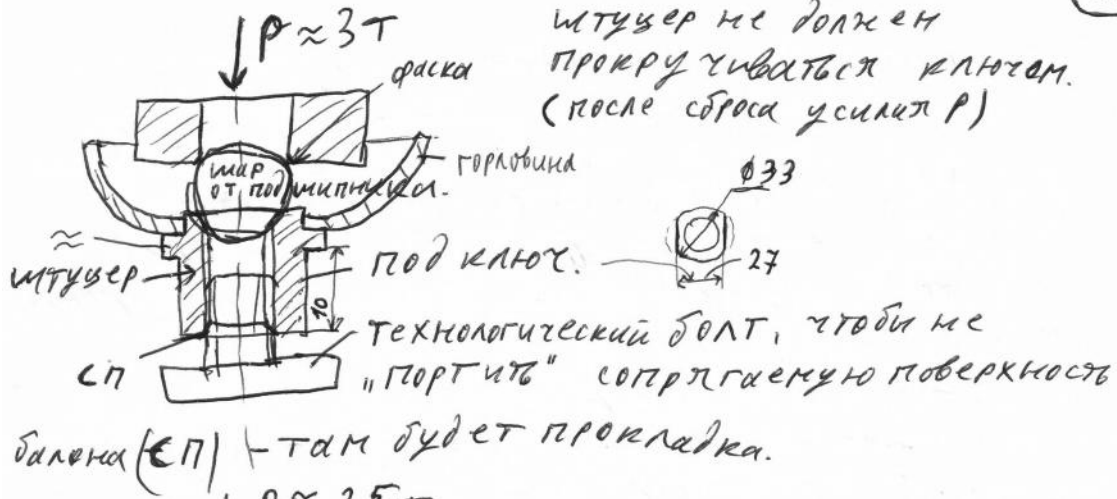 P ≈ 3 Т
штуцер не должен
прокручиваться ключом.
(после сброса усилия P)
фаска
горловина
шар
от подшипника.
ϕ33
27
≈
штуцер
под ключ.
10
СП
технологический болт, чтобы не
„портить“ сопрягаемую поверхность
балона (СП) – там будет прокладка.